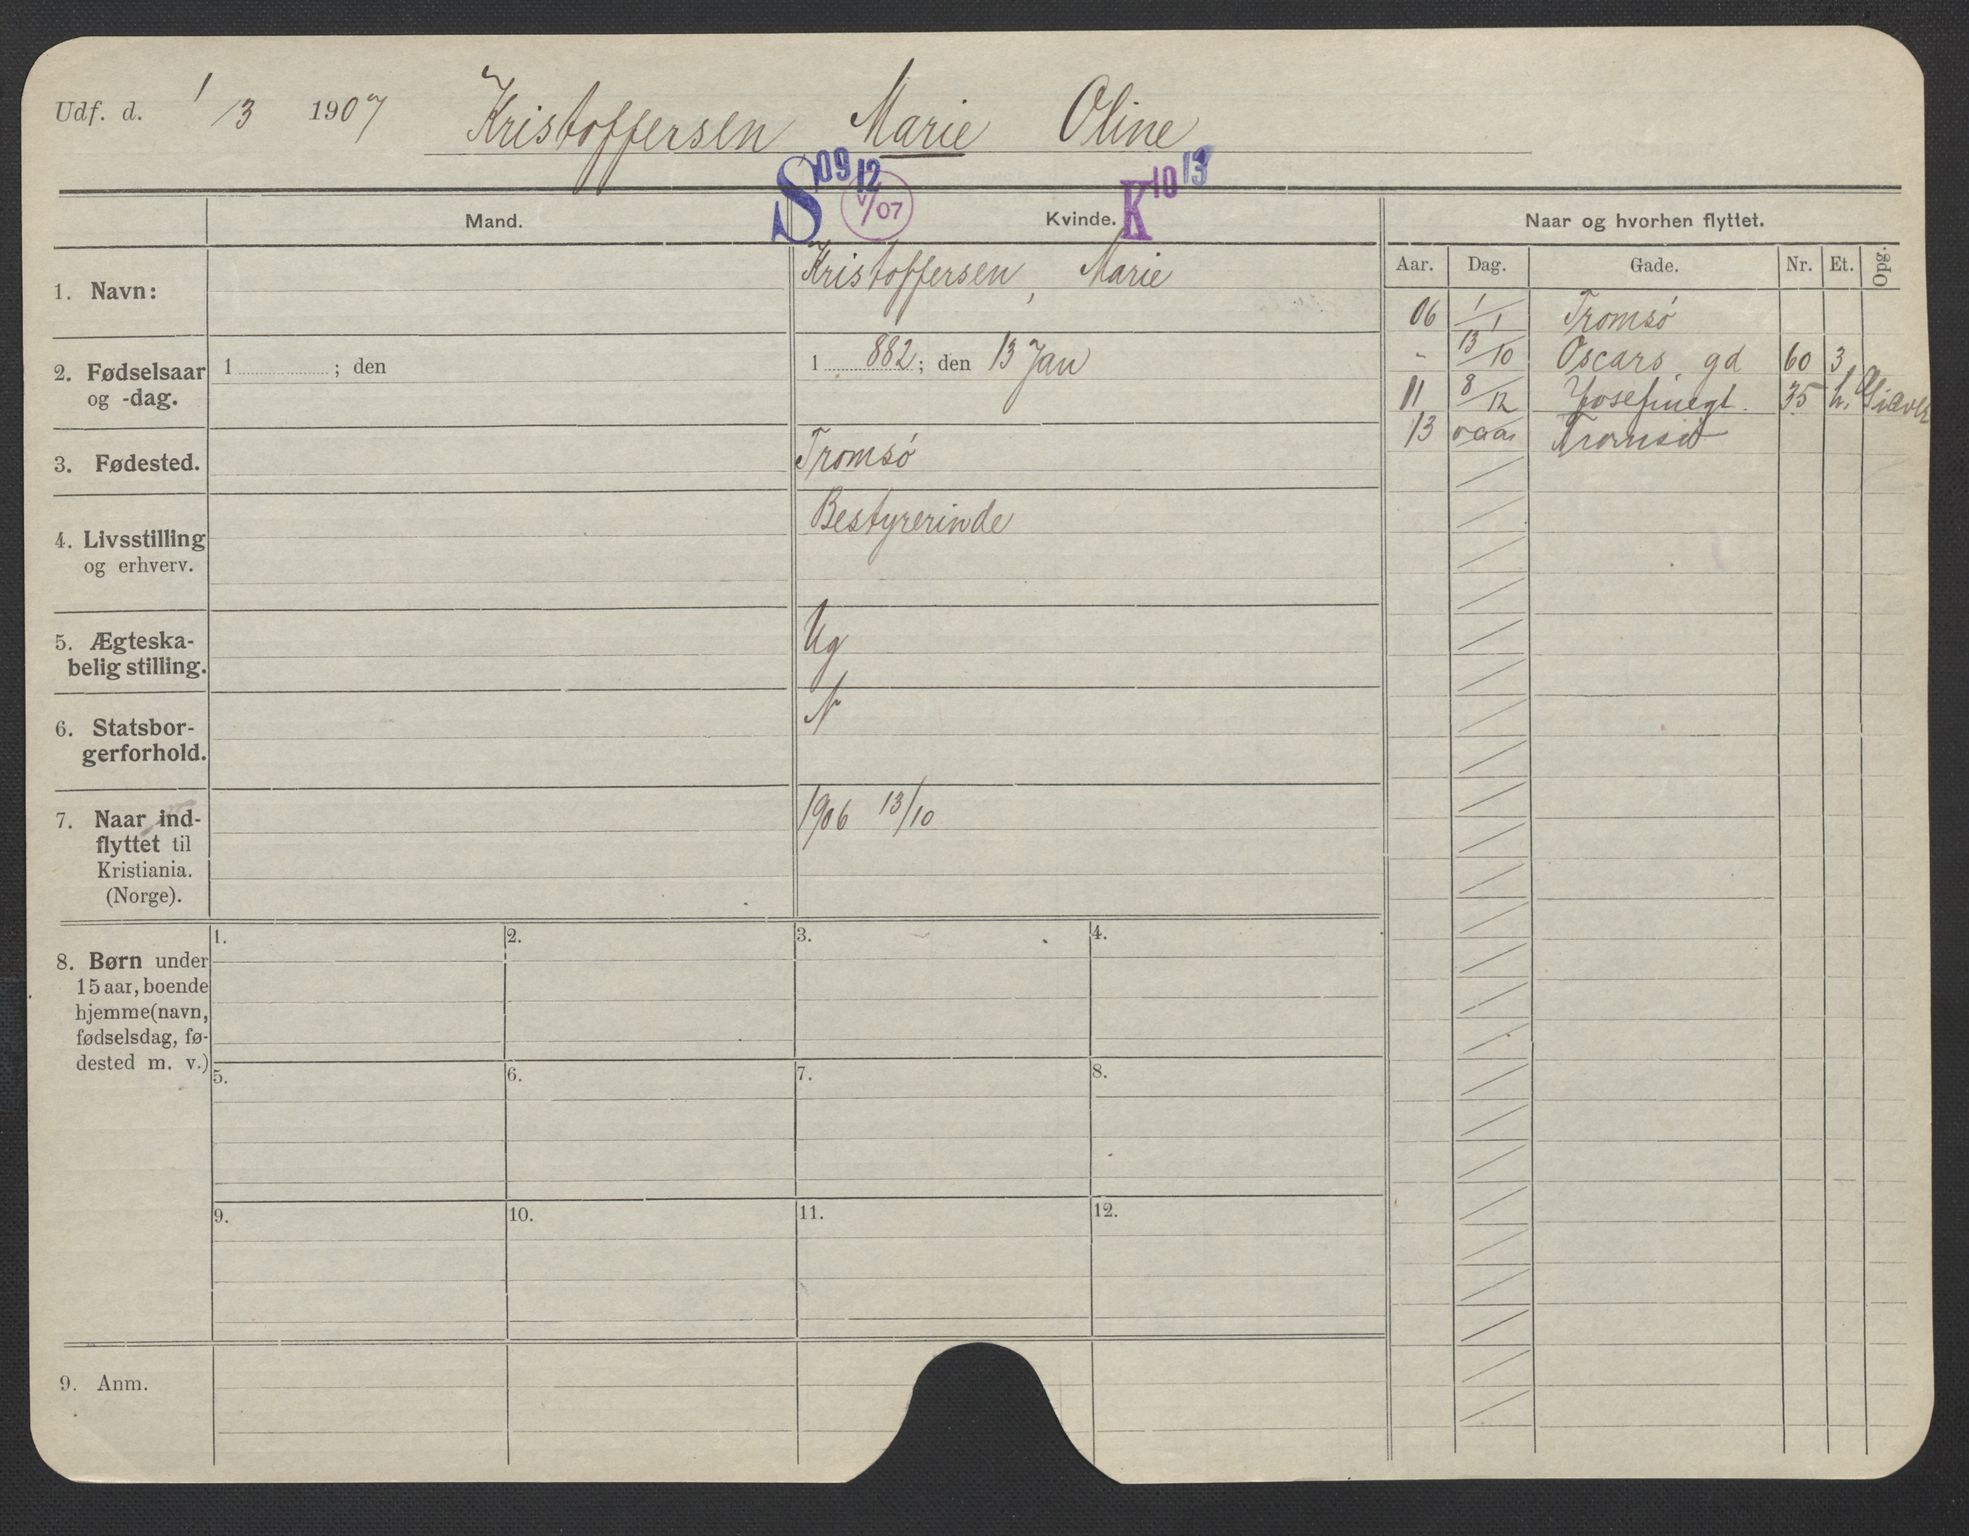 Udf. d. 1/3 1907 Kristoffersen Marie Oline
S 09 12 V/07 K 10 13
Mand. Kvinde. Naar og hvorhen flyttet.
Aar. Dag. Gade. Nr. Et. Opg.
1. Navn: Kristoffersen, Marie
06 1/1 Tromsø
2. Fødselsaar og -dag. 1 ; den 1882; den 13 Jan
- 13/10 Oscars gd 60 3
11 8/12 Josefinegt. 35 h.
13 Tromsø
3. Fødested. Tromsø
4. Livsstilling og erhverv. Bestyrerinde
5. Ægteska-
belig stilling. Ug
6. Statsbor-
gerforhold. N
7. Naar ind-
flyttet til
Kristiania.
(Norge). 1906 13/10
8. Børn under
15 aar, boende
hjemme (navn,
fødselsdag, fø-
dested m. v.)
1. 2. 3. 4.
5. 6. 7. 8.
9. 10. 11. 12.
9. Anm.